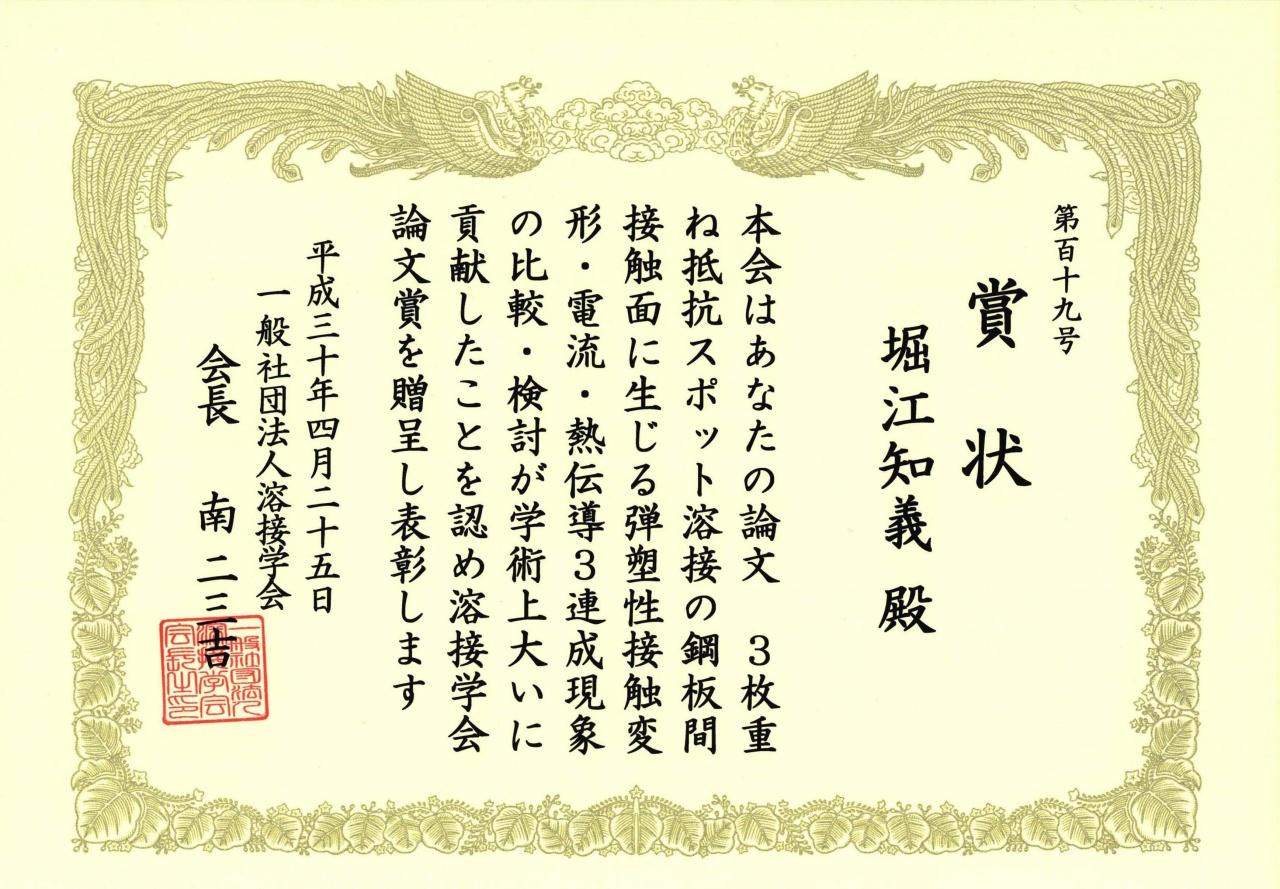 第百十九号
賞状
堀江知義 殿
本会はあなたの論文 3枚重
ね抵抗スポット溶接の鋼板間
接触面に生じる弾塑性接触変
形・電流・熱伝導3連成現象
の比較・検討が学術上大いに
貢献したことを認め溶接学会
論文賞を贈呈し表彰します
平成三十年四月二十五日
一般社団法人溶接学会
会長 南二三吉
一般社団法人
溶接学会
会長之印